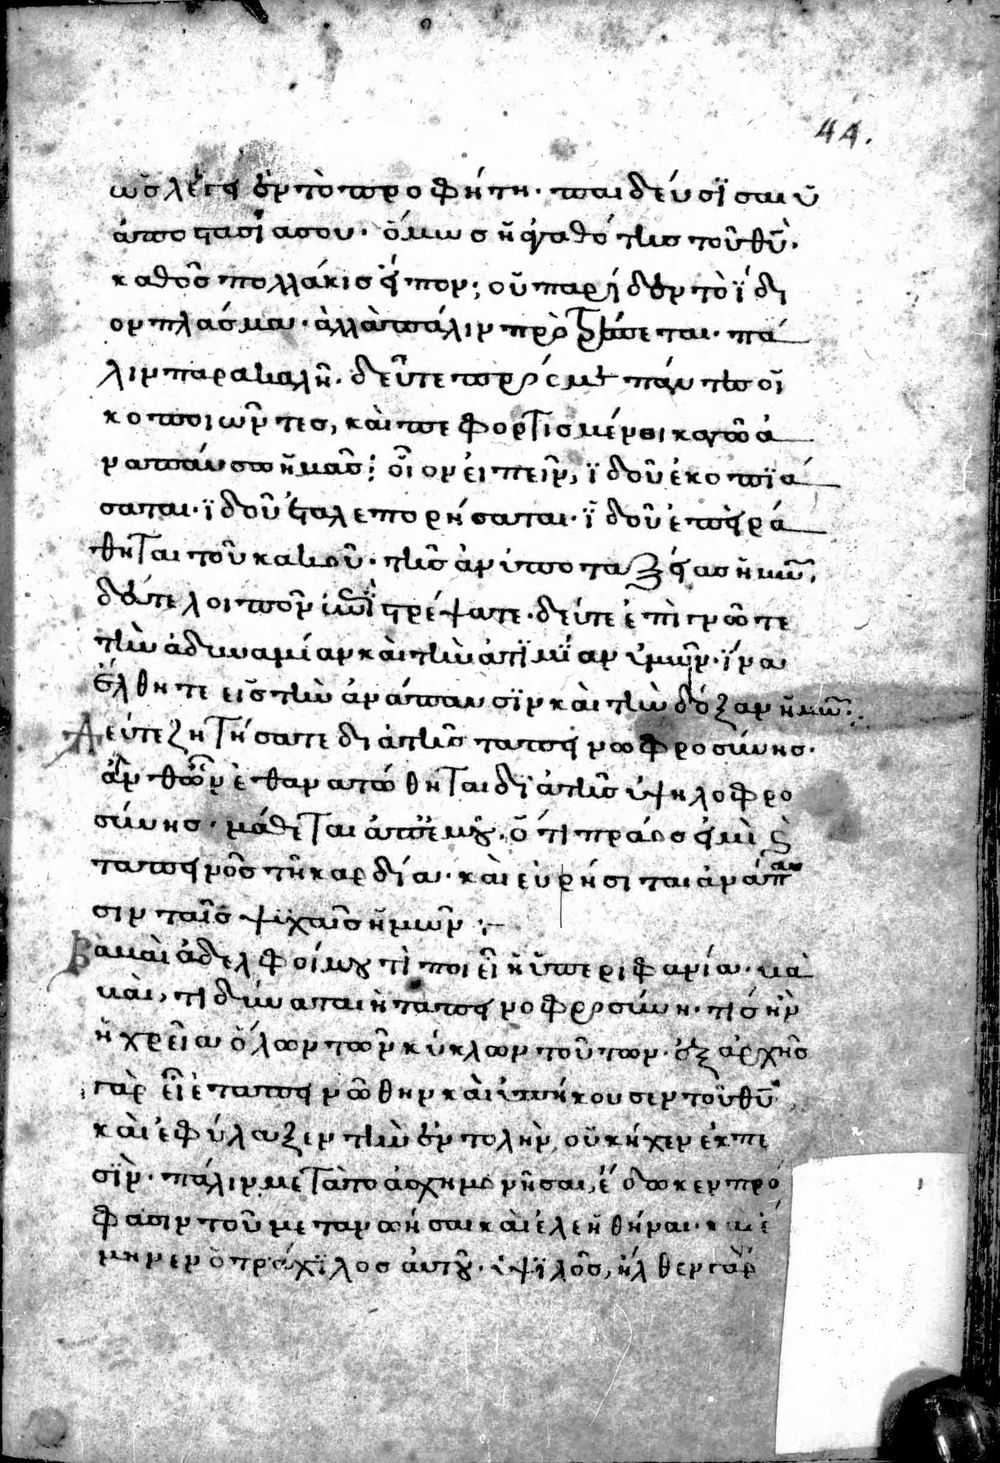 44.
ὡς λέγει ἐν τὸ προφήτη· παιδεύσϊ σαι ὓ
ἀποστασΐασου· ὅμως ἡ ἀγαθότης τοῦ θῦ·
καθὸς πολλάκις εἶπον; οὐ παρήδεν τὸ ἴδι
ον πλάσμα· ἀλλὰ πάλιν προτρέπεται· πά
λιν παρακαλῆ· δεῦτε πρός με πάντες οἱ
κοποιῶντες, καὶ πεφορτισμένοι καγῶ ἀ
ναπαύσω ἡμᾶς; οἷον εἰπεῖν, ἰδοῦ ἐκοπϊά
σαται· ἰδοῦ ἐταλεπορήσαται· ἰδοῦ ἐπειρά
θηται τοῦ κακοῦ· τῆς ἀνυποταξείας ἡμῶν,
δεύτε λοιπὸν ἐπιστρέψατε· δεύτε ἐπὶγνῶτε
τὴν ἀδυναμίαν καὶ τὴν ἀτϊμΐαν ὑμῶν· ἵνα
ἔλθητε εἰς τὴν ἀνάπαυσϊν καὶ τὴν δόξαν ἡμῶν·
Δεύτε ζητήσατε διὰ τῆς ταπεινωφροσύνης·
ἀνθῶν ἐθανατώθηται διὰ τῆς ὑψηλοφρο
σύνης· μάθεται ἀπ' ἐμοῦ· ὅτι πράος εἰμὶ καὶ
ταπεινὸς τῆ καρδία· καὶ εὑρήσιται ἀνάπαυ
σιν ταῖς ψϊχαῖς ἡμῶν :~
Βακαὶ ἀδελφοί μου τὶ ποιεῖ ἡ ὑπεριφανία· κὰ
καὶ, τὶ δύναται ἡ ταπεινοφροσύνη· τίς ἦν
ἡ χρεία ὅλων τῶν κύκλων τούτων· ἐξ ἀρχῆς
γὰρ εἰ ἐταπεινώθην καὶ ὑπήκουσεν τοῦ θῦ
καὶ ἐφύλαξεν τὴν ἐντολὴν, οὐκ ἦχεν ἐκπε
σῒν· πάλιν μετὰ πο ἀσχημονῆσαι, ἔδωκεν πρό
φασιν τοῦ μετανωήσαι καὶ ἐλεηθήναι· καὶ ἔ
μηνεν ὁ τράχϊλος αὐτοῦ· ὑψϊλὸς, ἦλθεν γὰρ